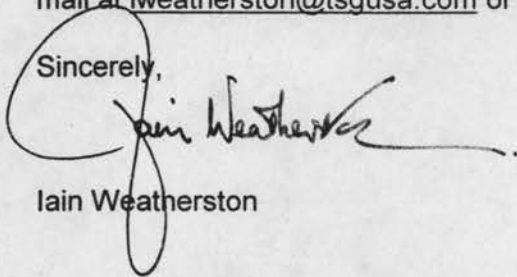 mail at iweatherston@tsgusa.com or
Sincerely,
Iain Weatherston
Iain Weatherston